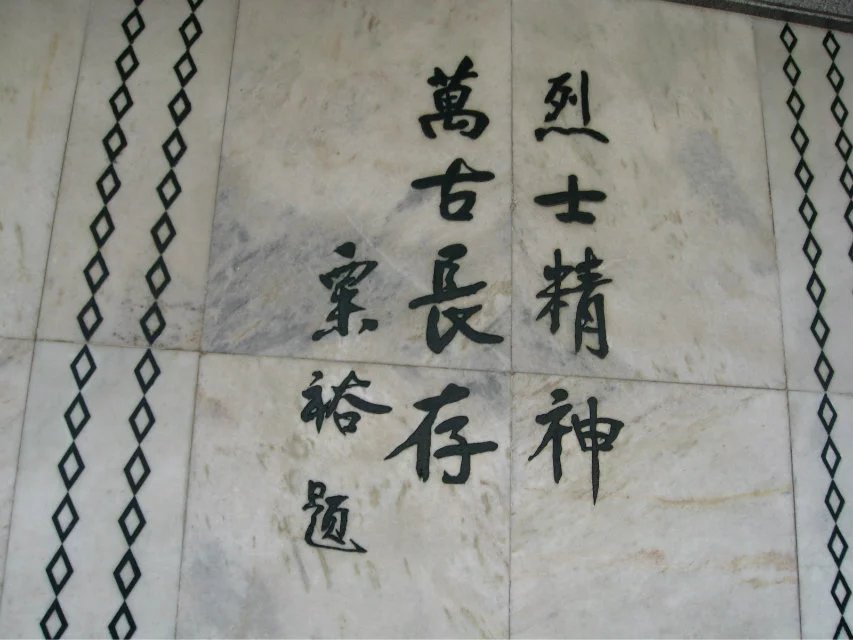 烈士精神
萬古長存
粟裕题